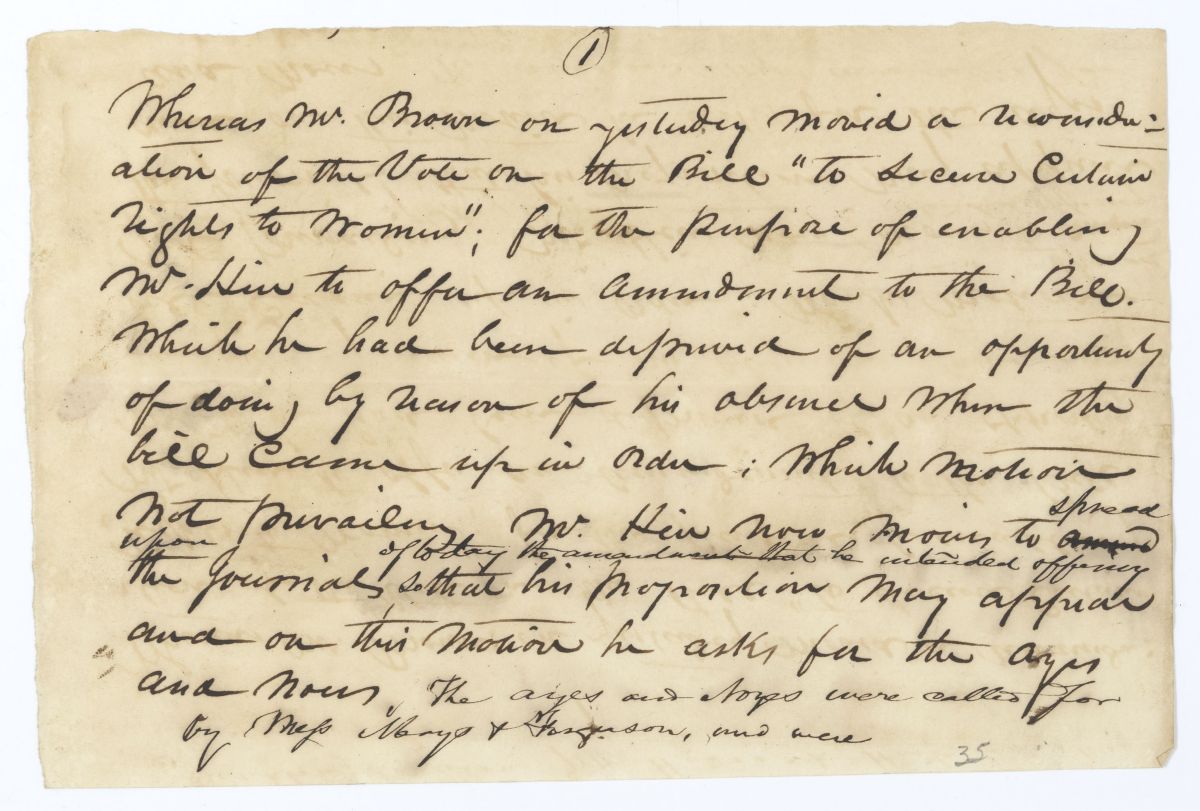 1
Whereas Mr. Brown on yesterday moved a reconsider=
ation of the Vote on the Bill "to secure Certain
rights to Women"; for the purpose of enabling
Mr. to offer an Amendment to the Bill.
Which he had been deprived of an opportunity
of doing by reason of his absence When the
bill Came up in order; Which Motion
Not prevailing Mr. now moves to amend spread
upon
the Journal, of to day the amendment that he intended offering
so that his proposition May appear
and on this Motion he asks for the ayes
and Noes, The ayes and Noyes were called for
by Mess Mays & Ferguson, and were
35